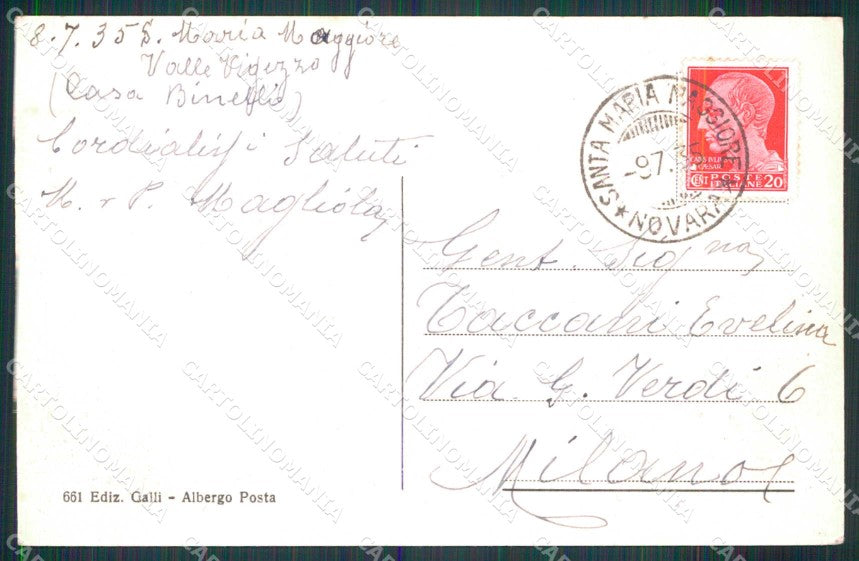 8.7.35 S. Maria Maggiore
Valle Vigezzo
(Casa Binelli)
Cordialissi Saluti
M. e P. Magliola
SANTA MARIA MAGGIORE
-97.
★ NOVARA ★
CENT POSTE ITALIANE 20
Gent. Signa
Taccani Evelina
Via G. Verdi 6
Milano
661 Ediz. Galli - Albergo Posta
CARTOLINOMANIA